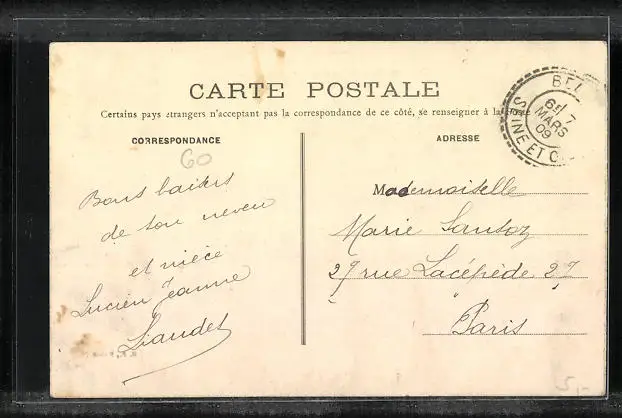 CARTE POSTALE
Certains pays étrangers n'acceptant pas la correspondance de ce côté, se renseigner à la Poste
CORRESPONDANCE
60
Bons baisers
de ton neveu
et nièce
Lucien Jeanne
Liaudet
ADRESSE
Mademoiselle
Marie Santoz
27 rue Lacépède 27
Paris
BEL
6E 7
MARS
09
SEINE ET O
5,-